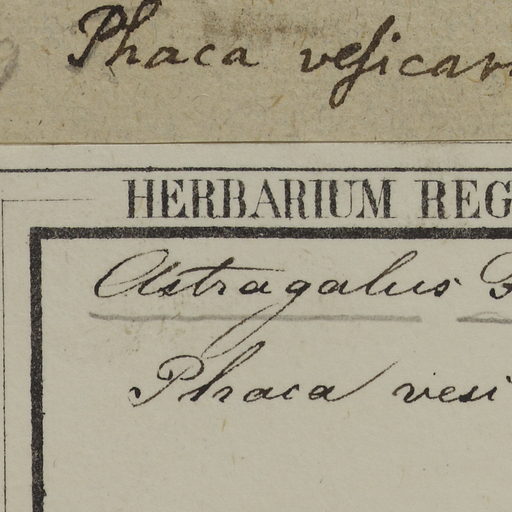 Phaca veſicar
HERBARIUM REG
Astragalus
Phaca vesi